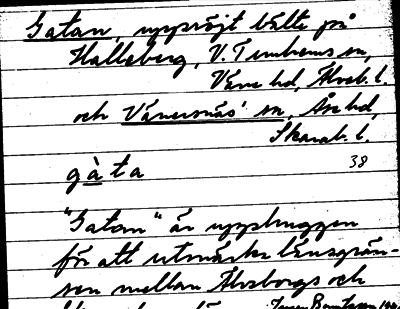 Gatan, uppröjt bälte på
Halleberg, V. Tunhems sn,
Väne hd, Älvsb. l.
och Vänersnäs' sn, Åse hd,
Skarab. l.
gàta 38
"Gatan" är upphuggen
för att utmärka länsgrän-
sen mellan Älvsborgs och